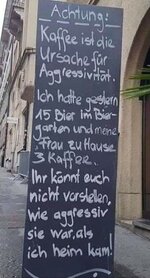 Achtung:
Kaffee ist die
Ursache für
Aggressivität.
Ich hatte gestern
15 Bier im Bier-
garten und meine
Frau zu Hause
3 Kaffee.
Ihr könnt euch
nicht vorstellen,
wie aggressiv
sie war, als
ich heim kam!